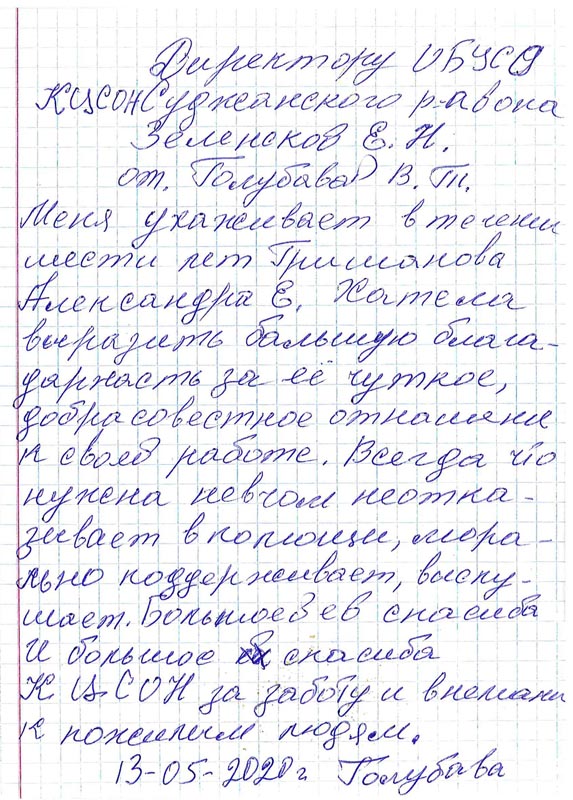 Директору ОБУСО
КЦСОН Суджанского р-авона
Зеленской Е. Н.
от. Голубавай В. Т.
Меня ухаживает в течении
шести лет Гриманова
Александра Е. Хатела
выразить балшую блага-
даржасть за её чуткое,
добрасовестное отнашени
к своей работе. Всегда что
нужна невчом неотка-
зывает впомощи, мора-
льно поддерживает, выслу-
шает. Большое ей спасиба
И большое спасиба
КЦСОН за заботу и внемани
к пожилим людям.
13-05-2020г Голубава